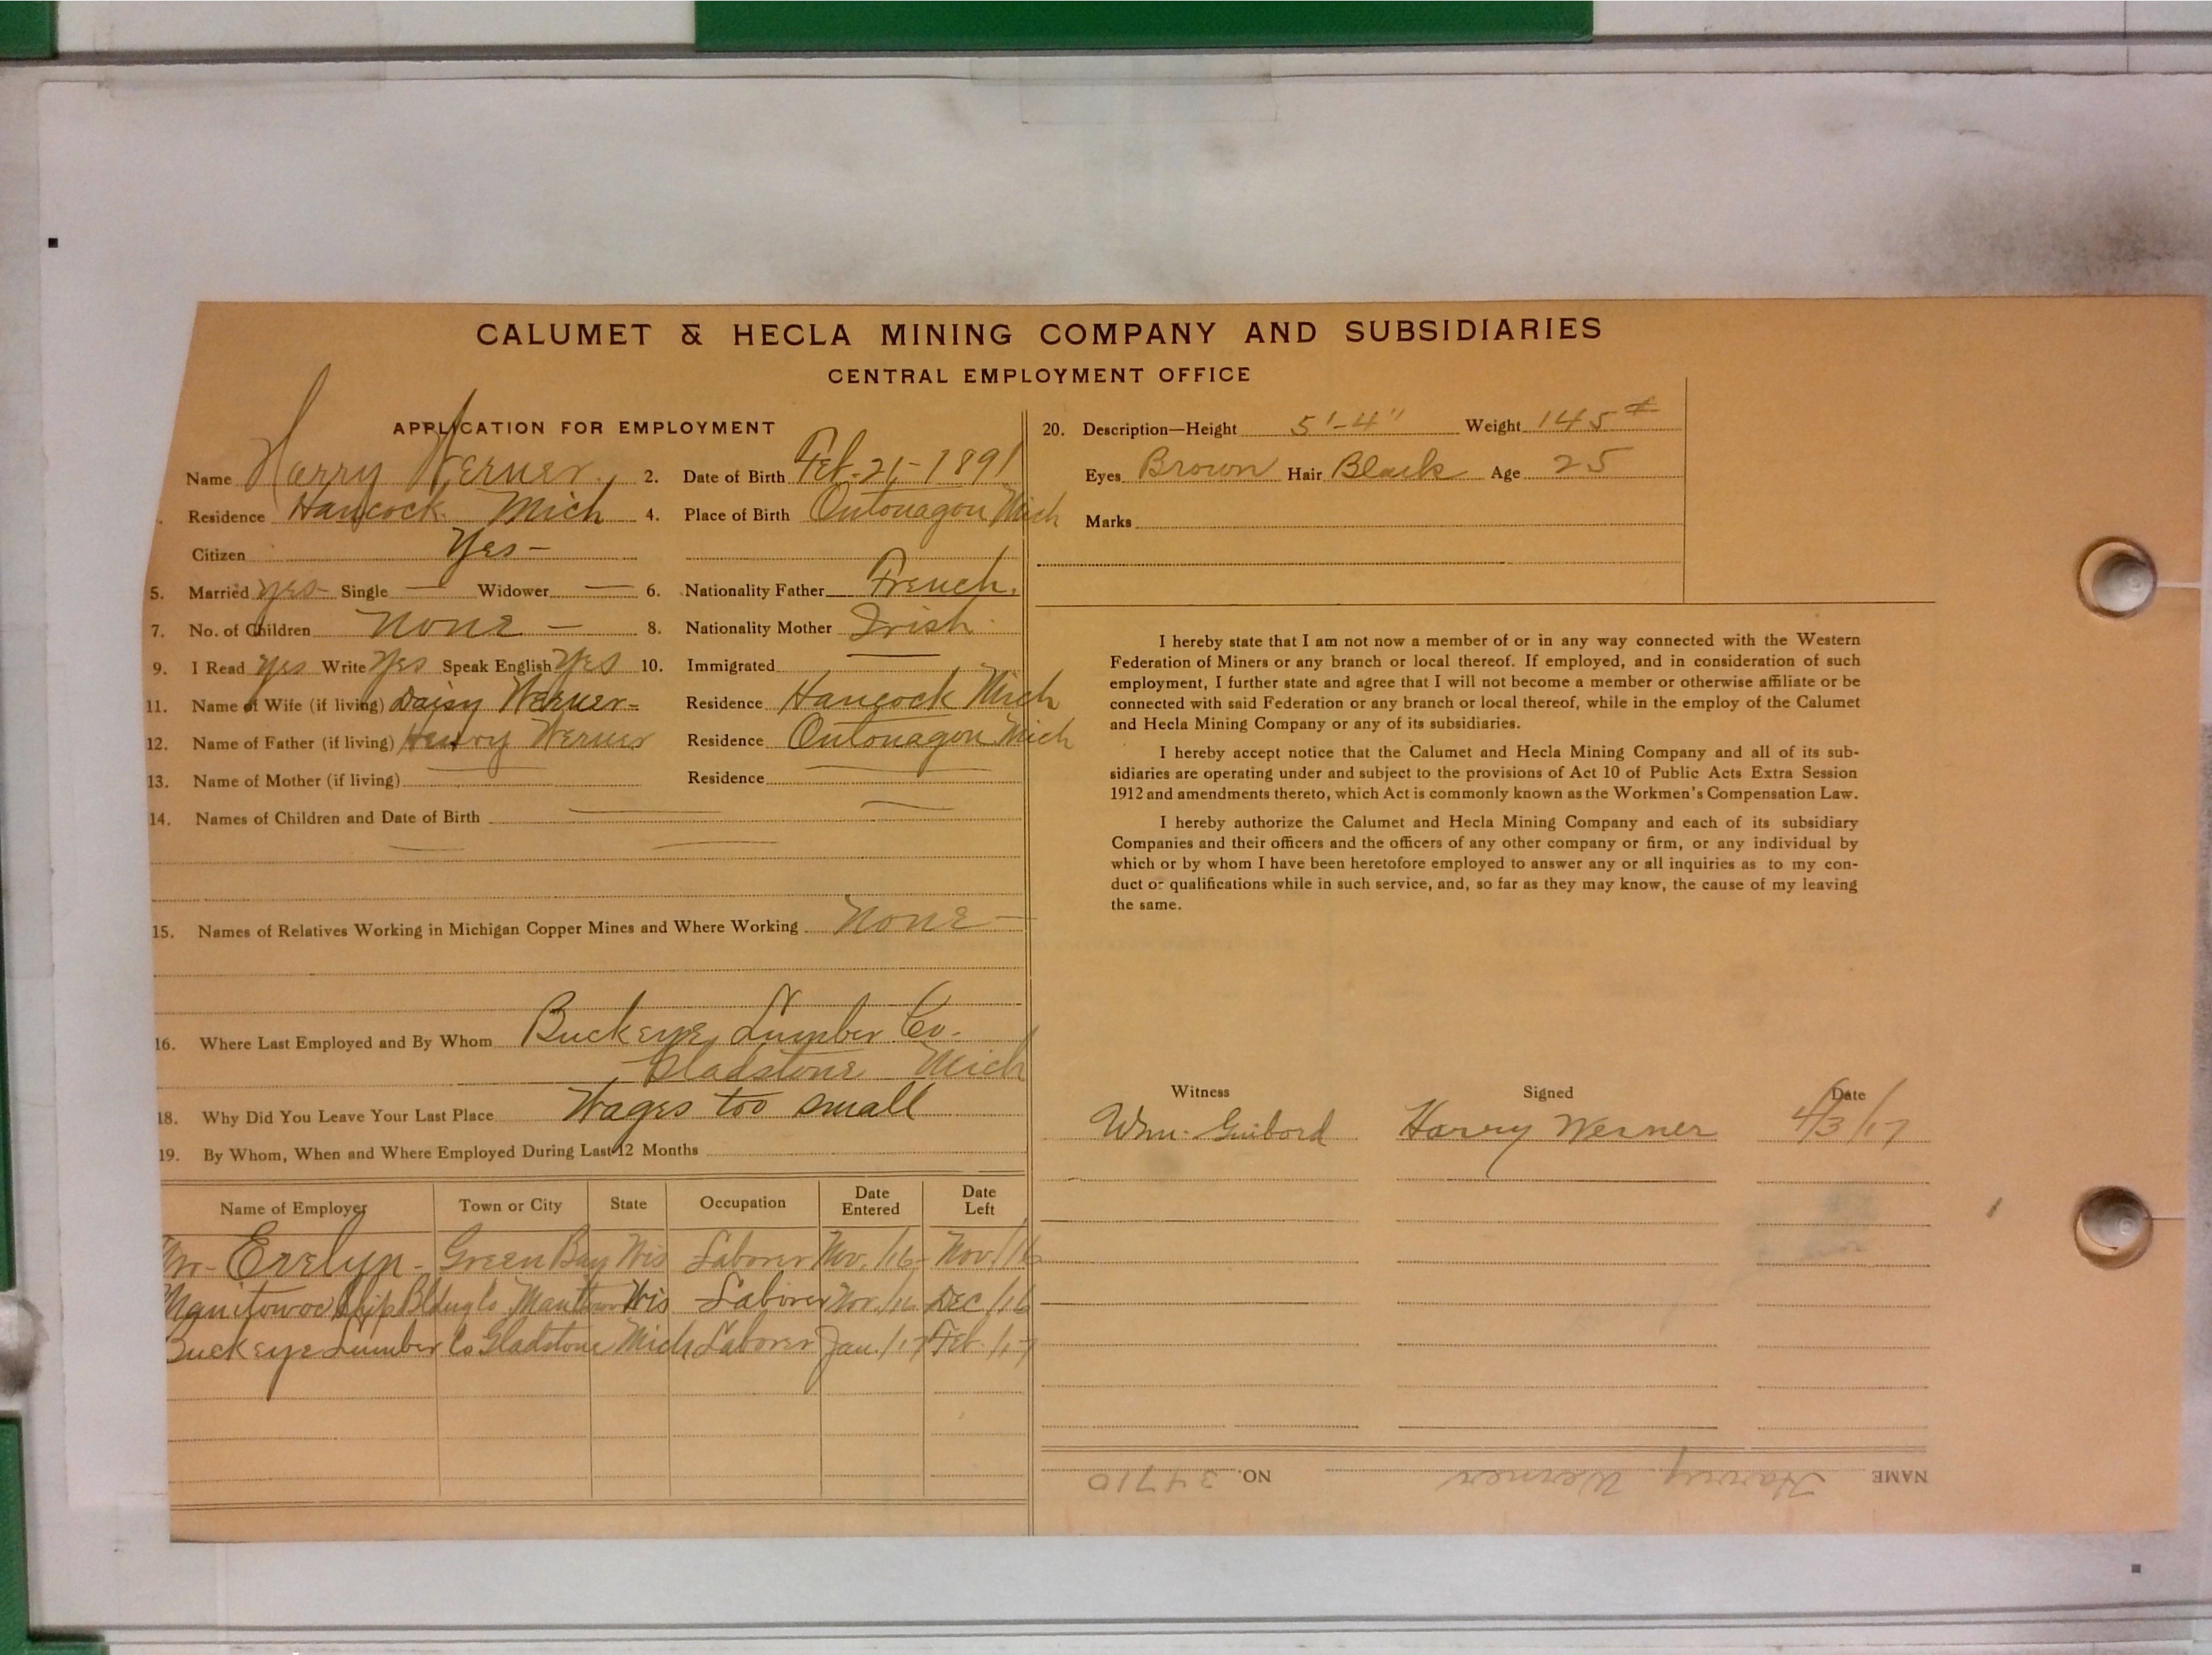 CALUMET & HECLA MINING COMPANY AND SUBSIDIARIES
CENTRAL EMPLOYMENT OFFICE
APPLICATION FOR EMPLOYMENT
Name Harry Werner. 2. Date of Birth Feb-21-1891
Residence Hancock Mich 4. Place of Birth Ontonagon Mich
Citizen Yes-
5. Married yes- Single — Widower — 6. Nationality Father French.
7. No. of Children none — 8. Nationality Mother Irish
9. I Read yes Write Yes Speak English Yes 10. Immigrated
11. Name of Wife (if living) Daisy Werner- Residence Hancock Mich
12. Name of Father (if living) Henry Werner Residence Ontonagon Mich
13. Name of Mother (if living) Residence
14. Names of Children and Date of Birth
15. Names of Relatives Working in Michigan Copper Mines and Where Working none —
16. Where Last Employed and By Whom Buckeye Lumber Co.
Gladstone Mich
18. Why Did You Leave Your Last Place Wages too small
19. By Whom, When and Where Employed During Last 12 Months
Name of Employer Town or City State Occupation Date Entered Date Left
Evelyn- Green Bay Wis Laborer Nov. /16- Nov. /16
Manitowoc Ship Bldng Co Wis Laborer Nov. /16 Dec /16
Buckeye Lumber Co Gladstone Mich Laborer Jan. /17 Feb. /17
20. Description—Height 5'-4" Weight 145#
Eyes Brown Hair Black Age 25
Marks
I hereby state that I am not now a member of or in any way connected with the Western
Federation of Miners or any branch or local thereof. If employed, and in consideration of such
employment, I further state and agree that I will not become a member or otherwise affiliate or be
connected with said Federation or any branch or local thereof, while in the employ of the Calumet
and Hecla Mining Company or any of its subsidiaries.
I hereby accept notice that the Calumet and Hecla Mining Company and all of its sub-
sidiaries are operating under and subject to the provisions of Act 10 of Public Acts Extra Session
1912 and amendments thereto, which Act is commonly known as the Workmen's Compensation Law.
I hereby authorize the Calumet and Hecla Mining Company and each of its subsidiary
Companies and their officers and the officers of any other company or firm, or any individual by
which or by whom I have been heretofore employed to answer any or all inquiries as to my con-
duct or qualifications while in such service, and, so far as they may know, the cause of my leaving
the same.
Witness Signed Date
Wm. Guibord Harry Werner 4/3/17
NAME Harry Werner NO. 34710